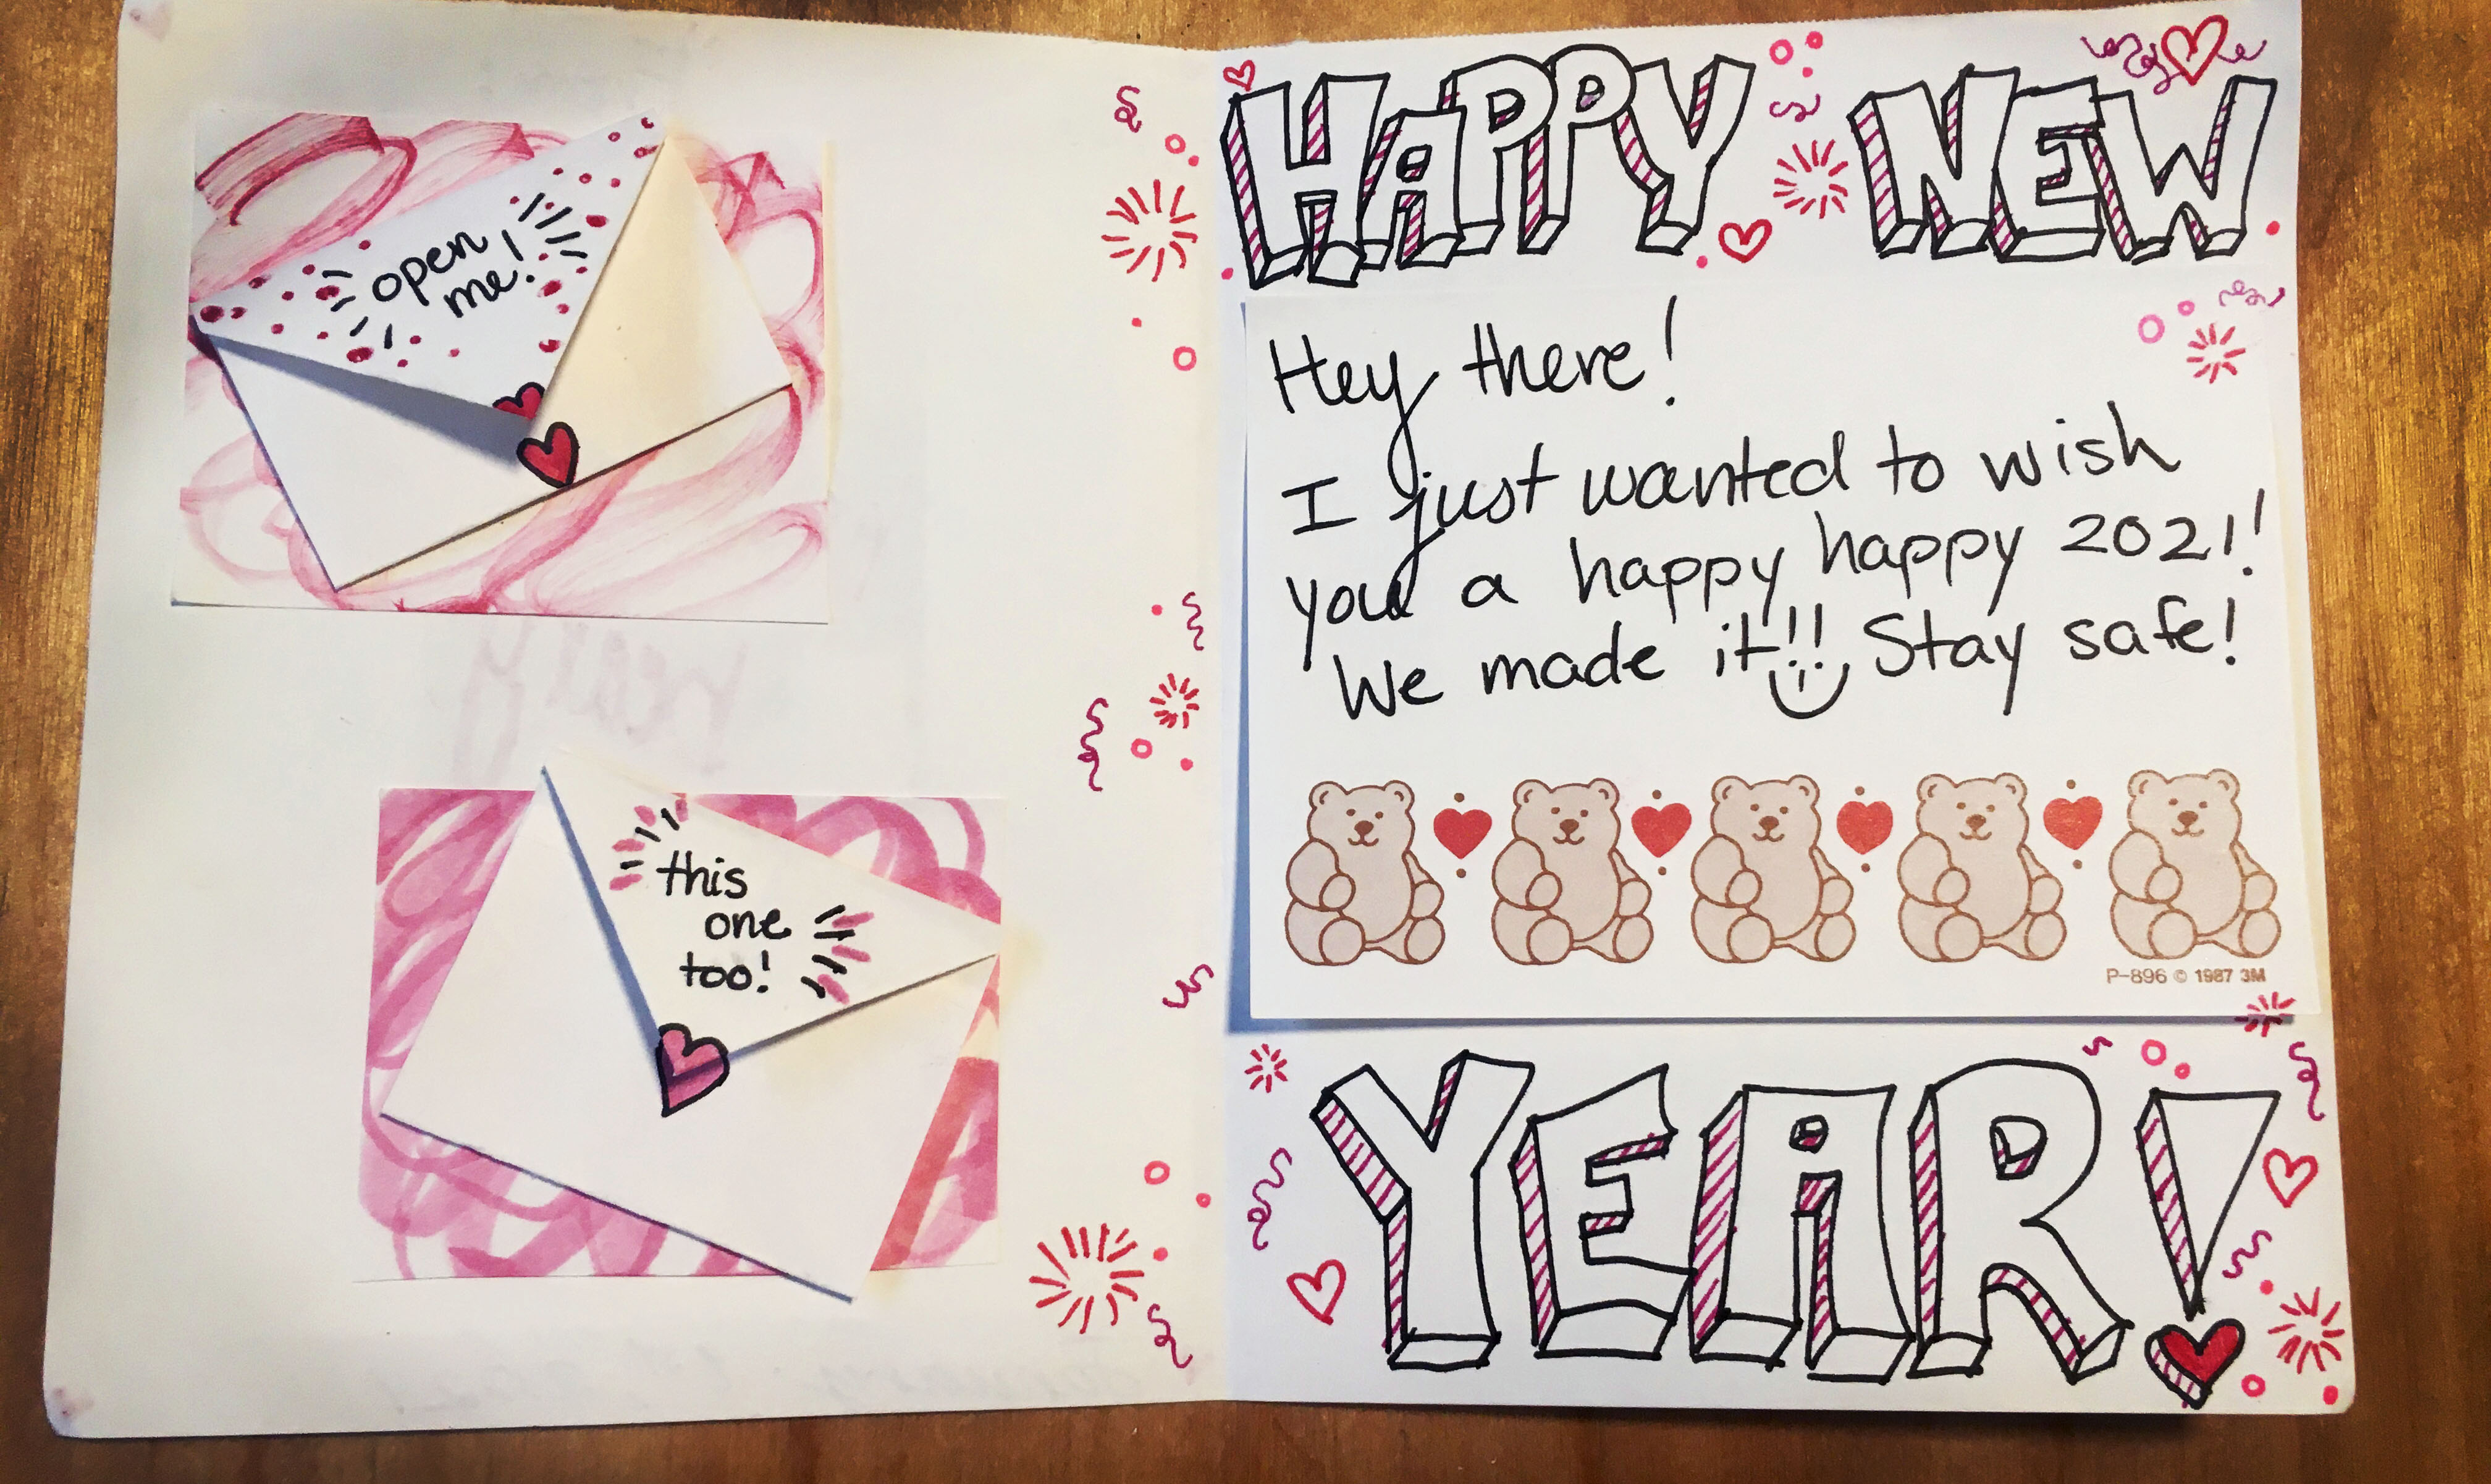 open
me!
this
one
too!
HAPPY NEW
Hey there!
I just wanted to wish
you a happy happy 2021!
We made it!! Stay safe!
P-896 © 1987 3M
YEAR!